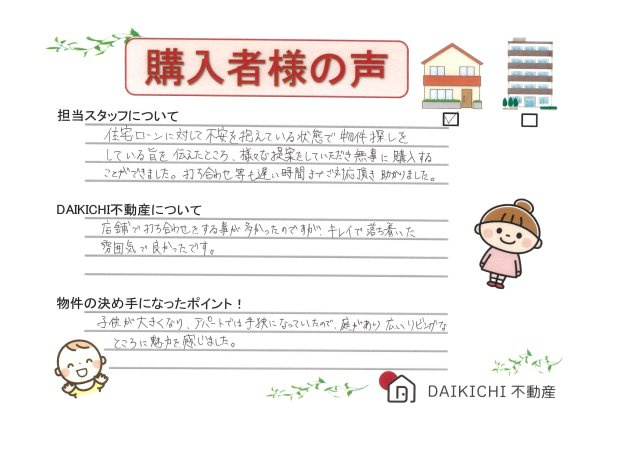 購入者様の声
担当スタッフについて
住宅ローンに対して不安を抱えている状態で物件探しを
している旨を伝えたところ、様々な提案をしていただき無事に購入する
ことができました。打ち合わせ等も遅い時間までご対応頂き助かりました。
DAIKICHI不動産について
店舗で打ち合わせをする事が多かったのですが、キレイで落ち着いた
雰囲気で良かったです。
物件の決め手になったポイント！
子供が大きくなり、アパートでは手狭になっていたので、庭があり広いリビングな
ところに魅力を感じました。
DAIKICHI 不動産